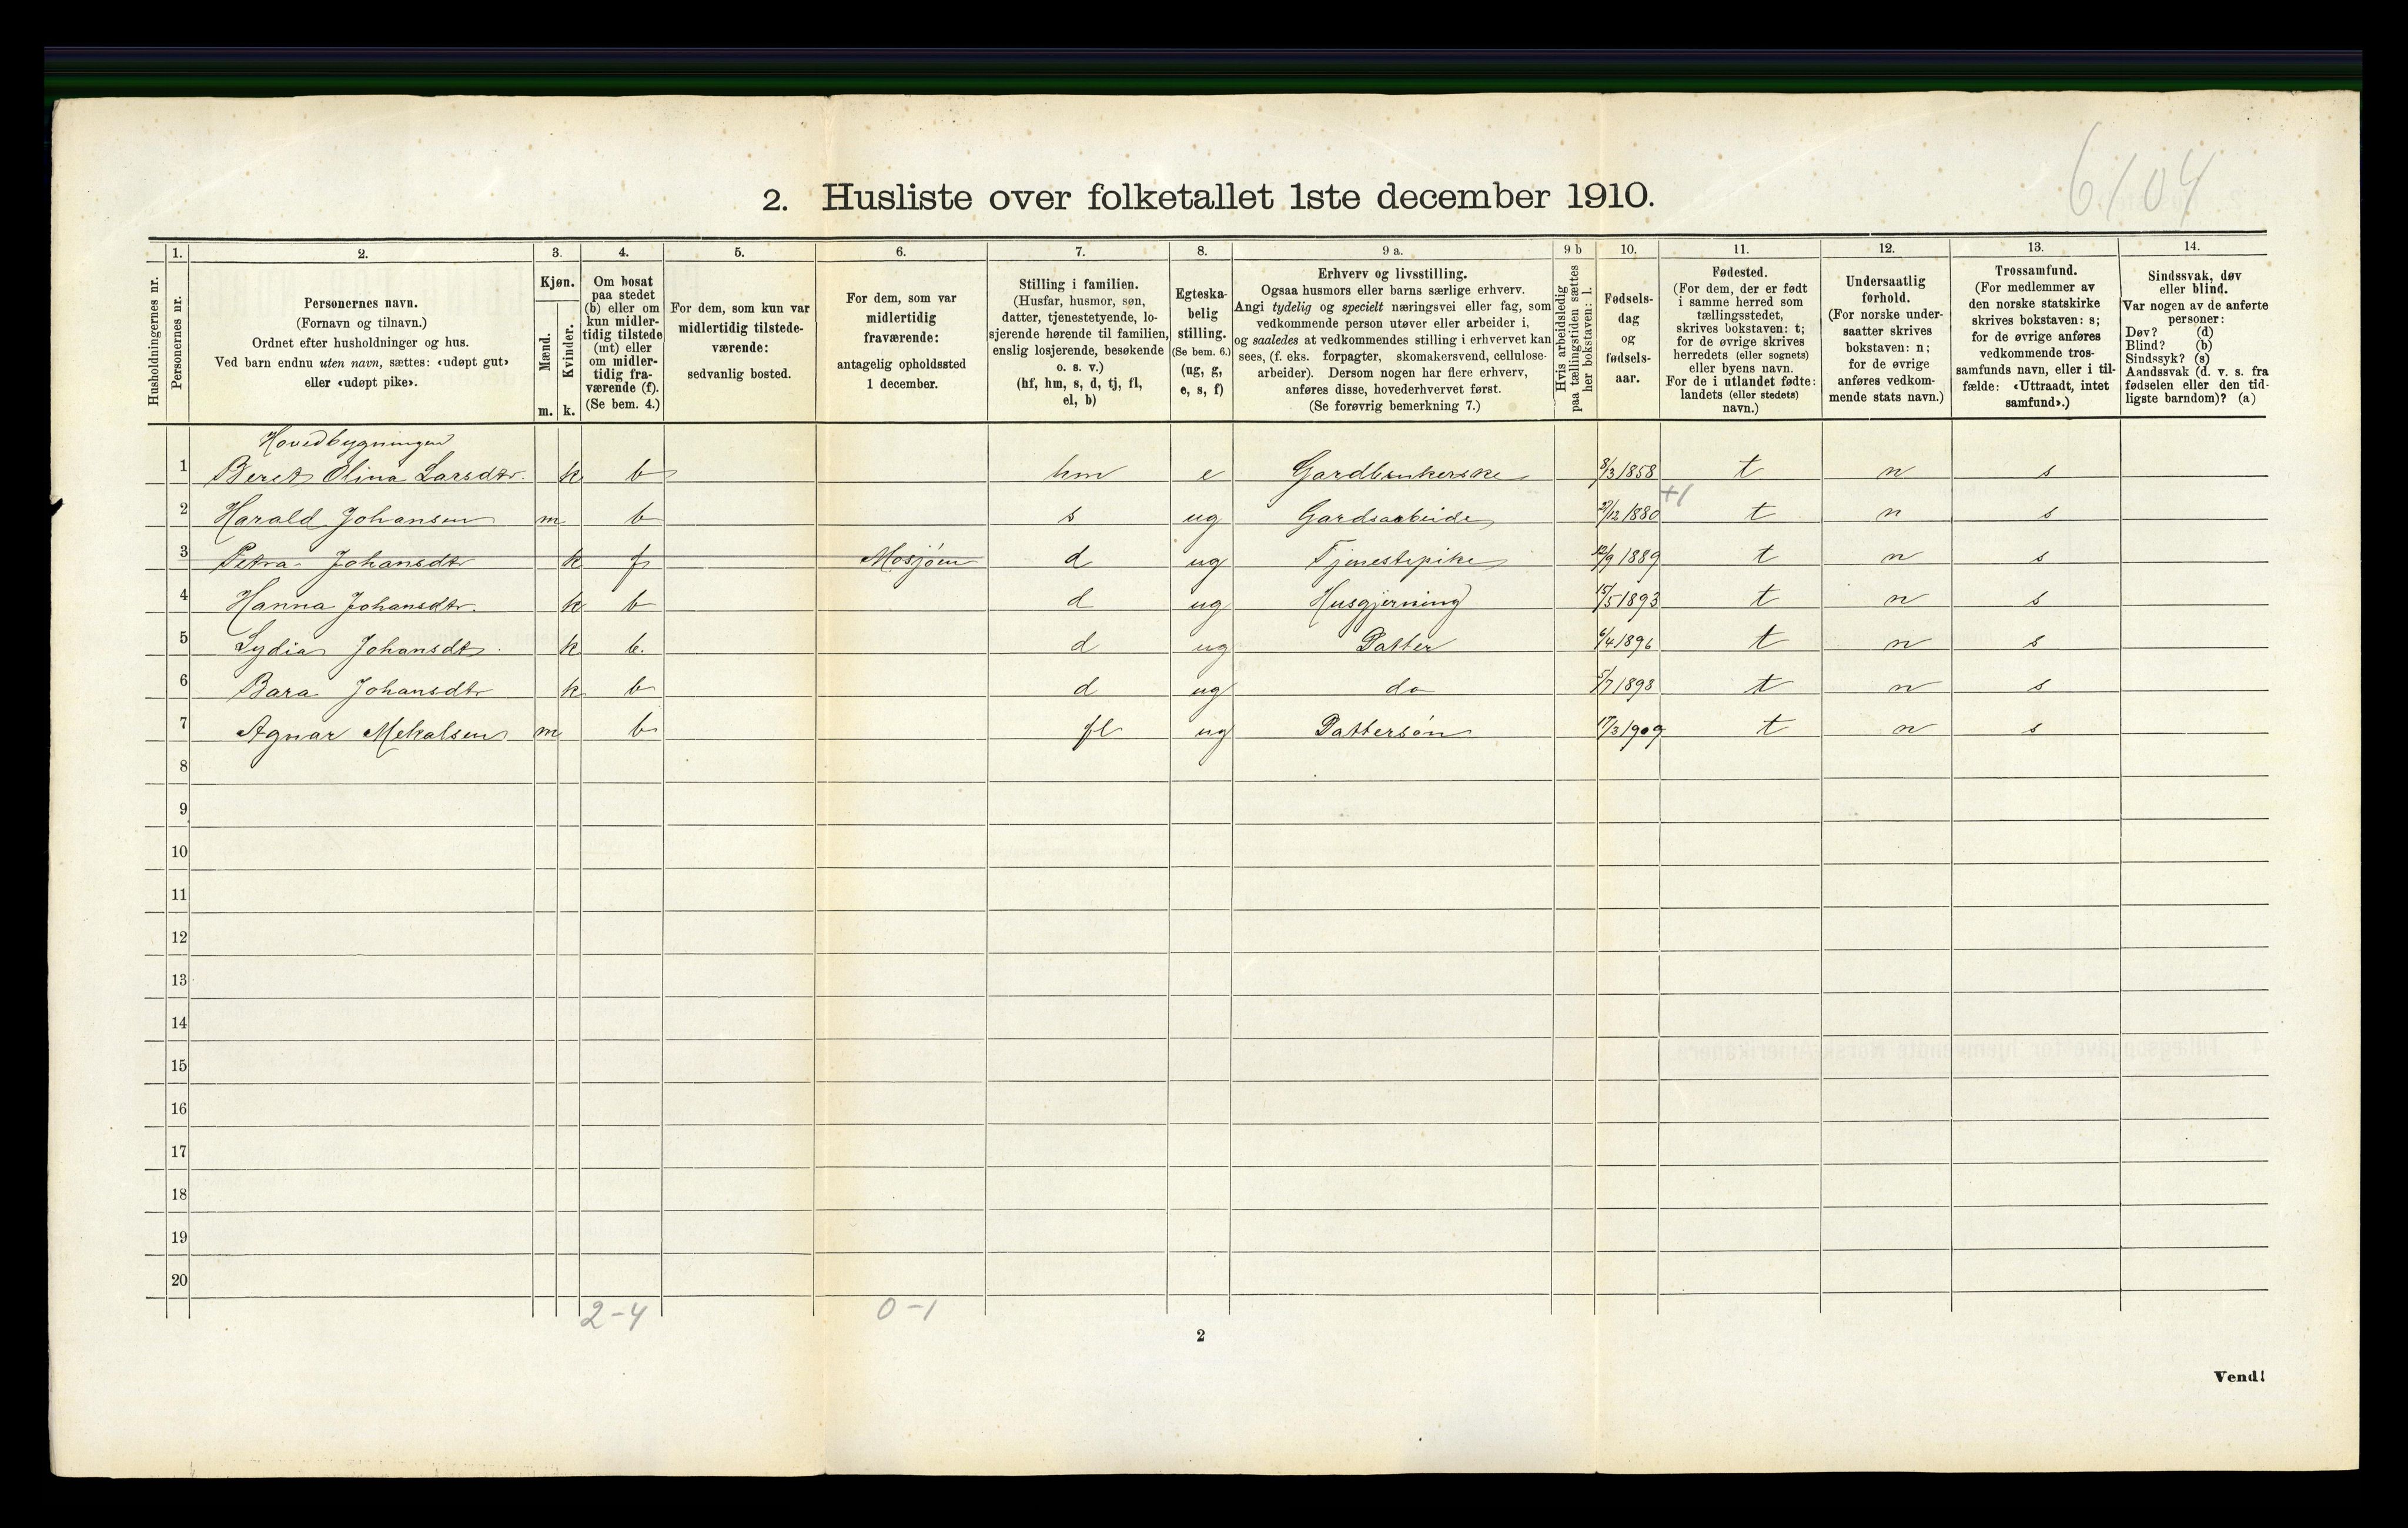 6104
2. Husliste over folketallet 1ste december 1910.
Husholdningernes nr.
1.
Personernes nr.
2.
Personernes navn.
(Fornavn og tilnavn.)
Ordnet efter husholdninger og hus.
Ved barn endnu uten navn, sættes: «udøpt gut»
eller «udøpt pike».
3.
Kjøn.
Mænd.
Kvinder.
m. k.
4.
Om bosat
paa stedet
(b) eller om
kun midler-
tidig tilstede
(mt) eller
om midler-
tidig fra-
værende (f).
(Se bem. 4.)
5.
For dem, som kun var
midlertidig tilstede-
værende:
sedvanlig bosted.
6.
For dem, som var
midlertidig
fraværende:
antagelig opholdssted
1 december.
7.
Stilling i familien.
(Husfar, husmor, søn,
datter, tjenestetyende, lo-
sjerende hørende til familien,
enslig losjerende, besøkende
o. s. v.)
(hf, hm, s, d, tj, fl,
el, b)
8.
Egteska-
belig
stilling.
(Se bem. 6.)
(ug, g,
e, s, f)
9 a.
Erhverv og livsstilling.
Ogsaa husmors eller barns særlige erhverv.
Angi tydelig og specielt næringsvei eller fag, som
vedkommende person utøver eller arbeider i,
og saaledes at vedkommendes stilling i erhvervet kan
sees, (f. eks. forpagter, skomakersvend, cellulose-
arbeider). Dersom nogen har flere erhverv,
anføres disse, hovederhvervet først.
(Se forøvrig bemerkning 7.)
9 b
Hvis arbeidsledig
paa tællingstiden sættes
her bokstaven: l.
10.
Fødsels-
dag
og
fødsels-
aar.
11.
Fødested.
(For dem, der er født
i samme herred som
tællingsstedet,
skrives bokstaven: t;
for de øvrige skrives
herredets (eller sognets)
eller byens navn.
For de i utlandet fødte:
landets (eller stedets)
navn.)
12.
Undersaatlig
forhold.
(For norske under-
saatter skrives
bokstaven: n;
for de øvrige
anføres vedkom-
mende stats navn.)
13.
Trossamfund.
(For medlemmer av
den norske statskirke
skrives bokstaven: s;
for de øvrige anføres
vedkommende tros-
samfunds navn, eller i til-
fælde: «Uttraadt, intet
samfund».)
14.
Sindssvak, døv
eller blind.
Var nogen av de anførte
personer:
Døv? (d)
Blind? (b)
Sindssyk? (s)
Aandssvak (d. v. s. fra
fødselen eller den tid-
ligste barndom)? (a)
Hovedbygningen
1 Beret Olina Larsdtr. k b hm e Gardbrukerske 8/3 1858 t n s
+1
2 Harald Johansen m b s ug Gardsarbeide /12 1880 t n s
3 Petra Johansdtr k f Mosjøen d ug Tjenestepike 12/9 1889 t n s
4 Hanna Johansdtr. k b d ug Husgjerning 15/5 1893 t n s
5 Lydia Johansdtr. k b. d ug Datter 6/4 1896 t n s
6 Bara Johansdtr k b d ug do 5/7 1898 t n s
7 Agnar Mekalsen m b fl ug Dattersøn 17/3 1909 t n s
8
9
10
11
12
13
14
15
16
17
18
19
20
2-4 0-1
2
Vend!